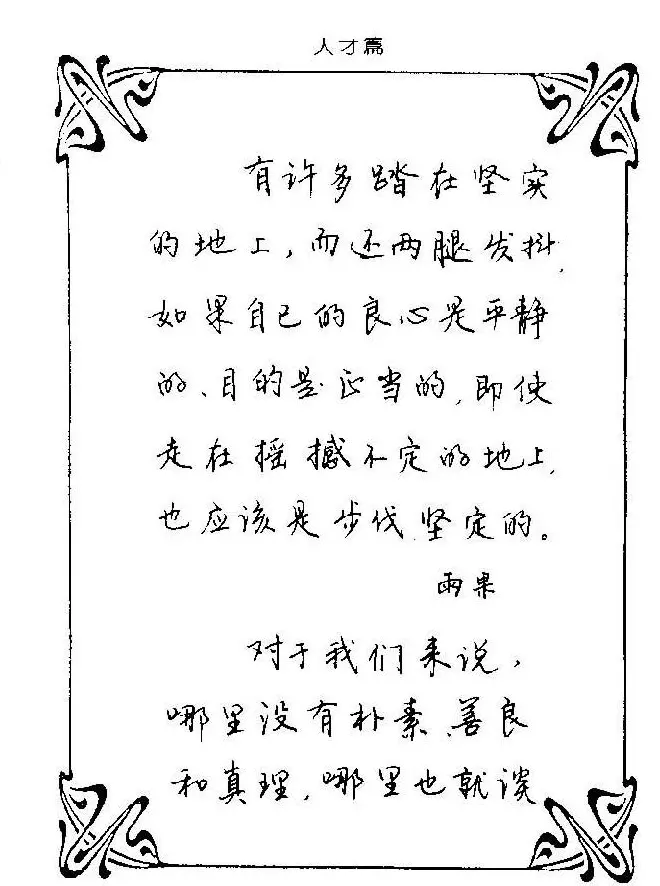 人才篇
有许多踏在坚实
的地上，而还两腿发抖，
如果自己的良心是平静
的、目的是正当的，即使
走在摇撼不定的地上，
也应该是步伐坚定的。
雨果
对于我们来说，
哪里没有朴素、善良
和真理，哪里也就谈